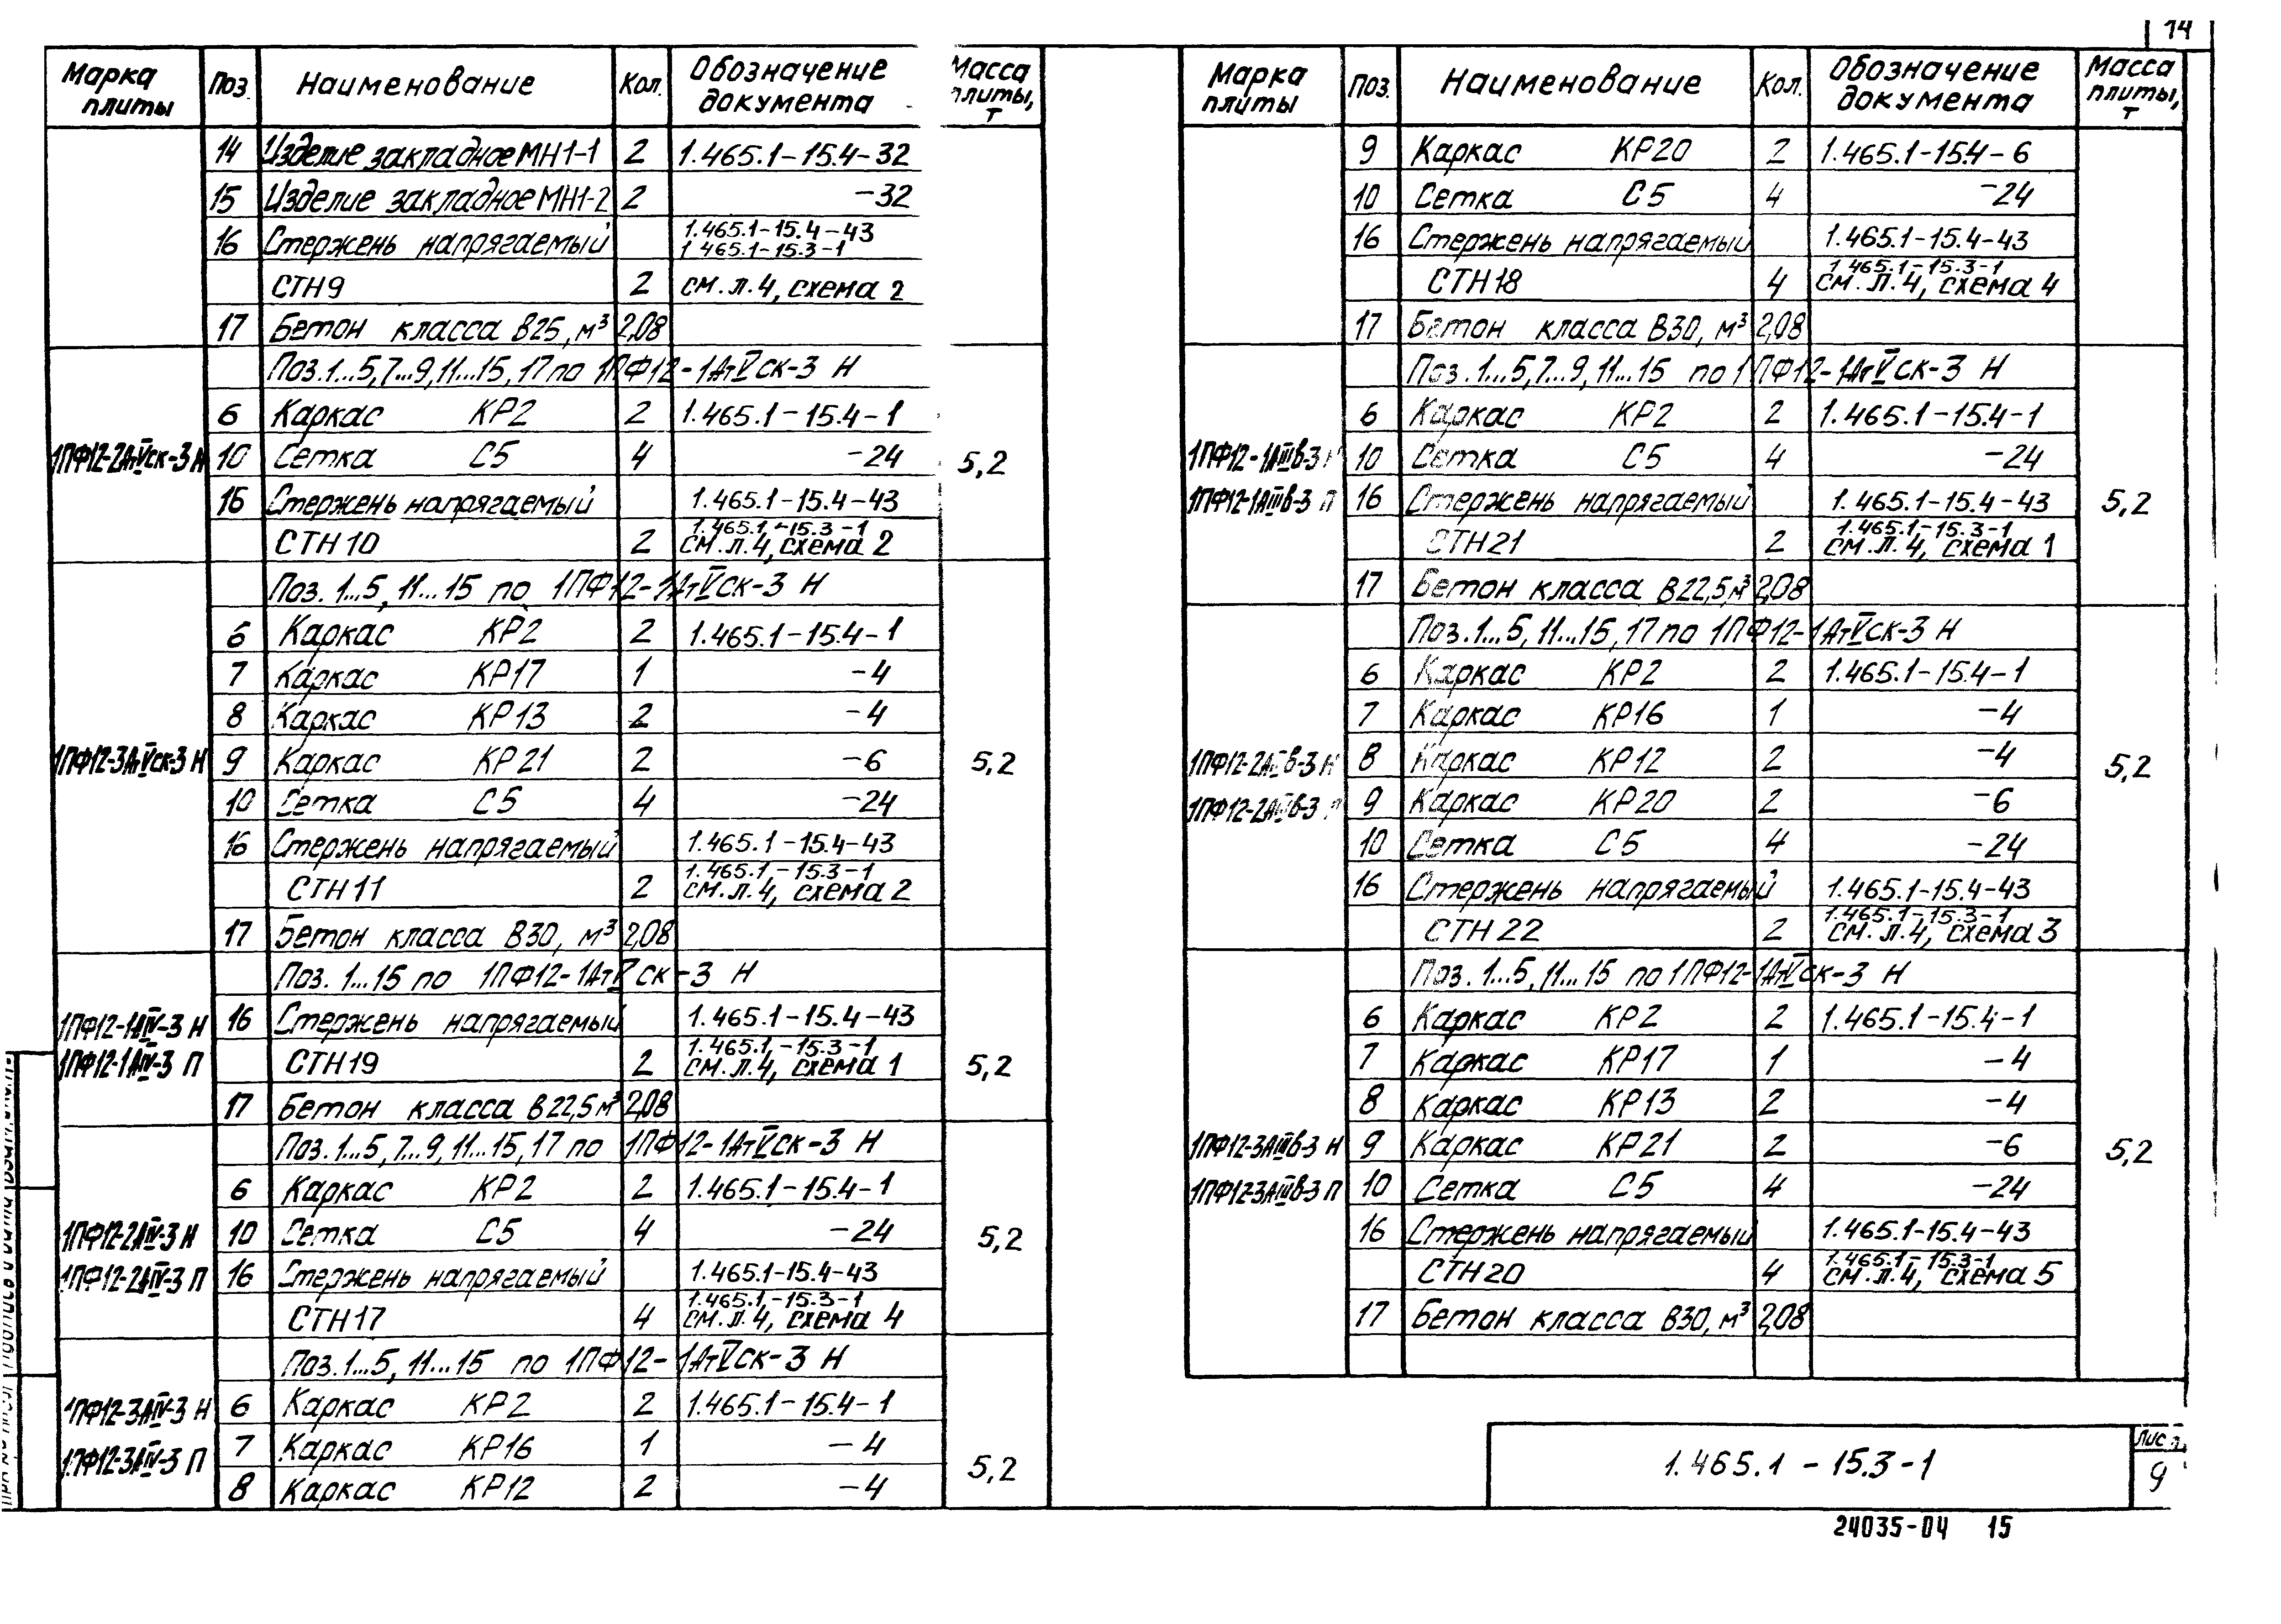 14
Марка плиты Поз. Наименование Кол. Обозначение документа Масса плиты, т
14 Изделие закладное МН1-1 2 1.465.1-15.4-32
15 Изделие закладное МН1-2 2 -32
16 Стержень напрягаемый 1.465.1-15.4-43
1.465.1-15.3-1
СТН9 2 см. л. 4, схема 2
17 Бетон класса В25, м³ 2,08
Поз. 1...5, 7...9, 11...15, 17 по 1ПФ12-1АтⅤск-3 Н
6 Каркас КР2 2 1.465.1-15.4-1
1ПФ12-2АтⅤск-3 Н 10 Сетка С5 4 -24 5,2
16 Стержень напрягаемый 1.465.1-15.4-43
1.465.1-15.3-1
СТН10 2 см. л. 4, схема 2
Поз. 1...5, 11...15 по 1ПФ12-1АтⅤск-3 Н
6 Каркас КР2 2 1.465.1-15.4-1
7 Каркас КР17 1 -4
8 Каркас КР13 2 -4
1ПФ12-3АтⅤск-3 Н 9 Каркас КР21 2 -6 5,2
10 Сетка С5 4 -24
16 Стержень напрягаемый 1.465.1-15.4-43
1.465.1-15.3-1
СТН11 2 см. л. 4, схема 2
17 Бетон класса В30, м³ 2,08
Поз. 1...15 по 1ПФ12-1АтⅤск-3 Н
1ПФ12-1АⅣ-3 Н 16 Стержень напрягаемый 1.465.1-15.4-43
1.465.1-15.3-1
1ПФ12-1АⅣ-3 П СТН19 2 см. л. 4, схема 1 5,2
17 Бетон класса В22,5 м³ 2,08
Поз. 1...5, 7...9, 11...15, 17 по 1ПФ12-1АтⅤск-3 Н
6 Каркас КР2 2 1.465.1-15.4-1
1ПФ12-2АⅣ-3 Н 10 Сетка С5 4 -24 5,2
1ПФ12-2АⅣ-3 П 16 Стержень напрягаемый 1.465.1-15.4-43
1.465.1-15.3-1
СТН17 4 см. л. 4, схема 4
Поз. 1...5, 11...15 по 1ПФ12-1АтⅤск-3 Н
1ПФ12-3АⅣ-3 Н 6 Каркас КР2 2 1.465.1-15.4-1
1ПФ12-3АⅣ-3 П 7 Каркас КР16 1 -4 5,2
8 Каркас КР12 2 -4
Марка плиты Поз. Наименование Кол. Обозначение документа Масса плиты, т
9 Каркас КР20 2 1.465.1-15.4-6
10 Сетка С5 4 -24
16 Стержень напрягаемый 1.465.1-15.4-43
1.465.1-15.3-1
СТН18 4 см. л. 4, схема 4
17 Бетон класса В30, м³ 2,08
Поз. 1...5, 7...9, 11...15 по 1ПФ12-1АтⅤск-3 Н
6 Каркас КР2 2 1.465.1-15.4-1
1ПФ12-1АⅢв-3 10 Сетка С5 4 -24
1ПФ12-1АⅢв-3 П 16 Стержень напрягаемый 1.465.1-15.4-43 5,2
1.465.1-15.3-1
СТН21 2 см. л. 4, схема 1
17 Бетон класса В22,5, м³ 2,08
Поз. 1...5, 11...15, 17 по 1ПФ12-1АтⅤск-3 Н
6 Каркас КР2 2 1.465.1-15.4-1
7 Каркас КР16 1 -4
1ПФ12-2АⅢв-3 Н 8 Каркас КР12 2 -4 5,2
1ПФ12-2АⅢв-3 П 9 Каркас КР20 2 -6
10 Сетка С5 4 -24
16 Стержень напрягаемый 1.465.1-15.4-43
1.465.1-15.3-1
СТН22 2 см. л. 4, схема 3
Поз. 1...5, 11...15 по 1ПФ12-1АтⅤск-3 Н
6 Каркас КР2 2 1.465.1-15.4-1
7 Каркас КР17 1 -4
8 Каркас КР13 2 -4
1ПФ12-3АⅢв-3 Н 9 Каркас КР21 2 -6 5,2
1ПФ12-3АⅢв-3 П 10 Сетка С5 4 -24
16 Стержень напрягаемый 1.465.1-15.4-43
1.465.1-15.3-1
СТН20 4 см. л. 4, схема 5
17 Бетон класса В30, м³ 2,08
1.465.1-15.3-1
Лист
9
24035-04 15